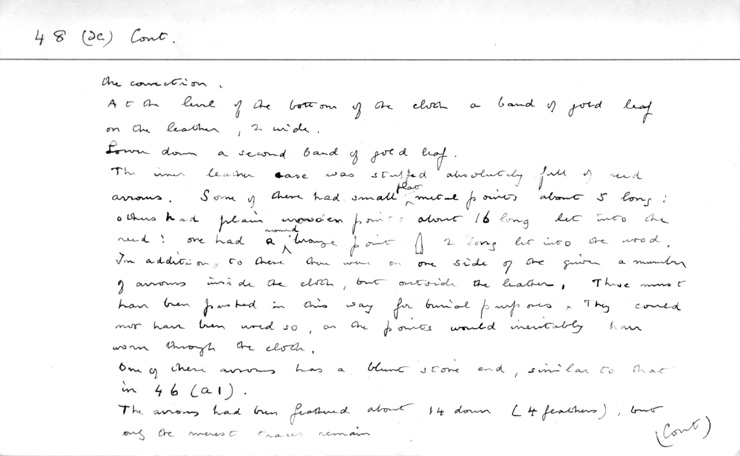 48 (DC) Cont.
the correction.
At the level of the bottom of the cloth a band of gold leaf
on the leather, 2 wide.
Lower down a second band of gold leaf.
The inner leather case was stuffed absolutely full of reed
arrows. Some of these had small flat metal points about 5 long:
others had plain wooden points about 16 long let into the
reed: one had a round bronze point 2 long let into the wood.
In addition, to these there were on one side of the quiver a number
of arrows inside the cloth, but outside the leather. These must
have been pushed in this way for burial purposes. They could
not have been used so, as the points would inevitably have
worn through the cloth.
One of these arrows has a blunt stone end, similar to that
in 46 (a1).
The arrows had been feathered about 14 down (4 feathers), but
only the merest traces remain
(Cont)